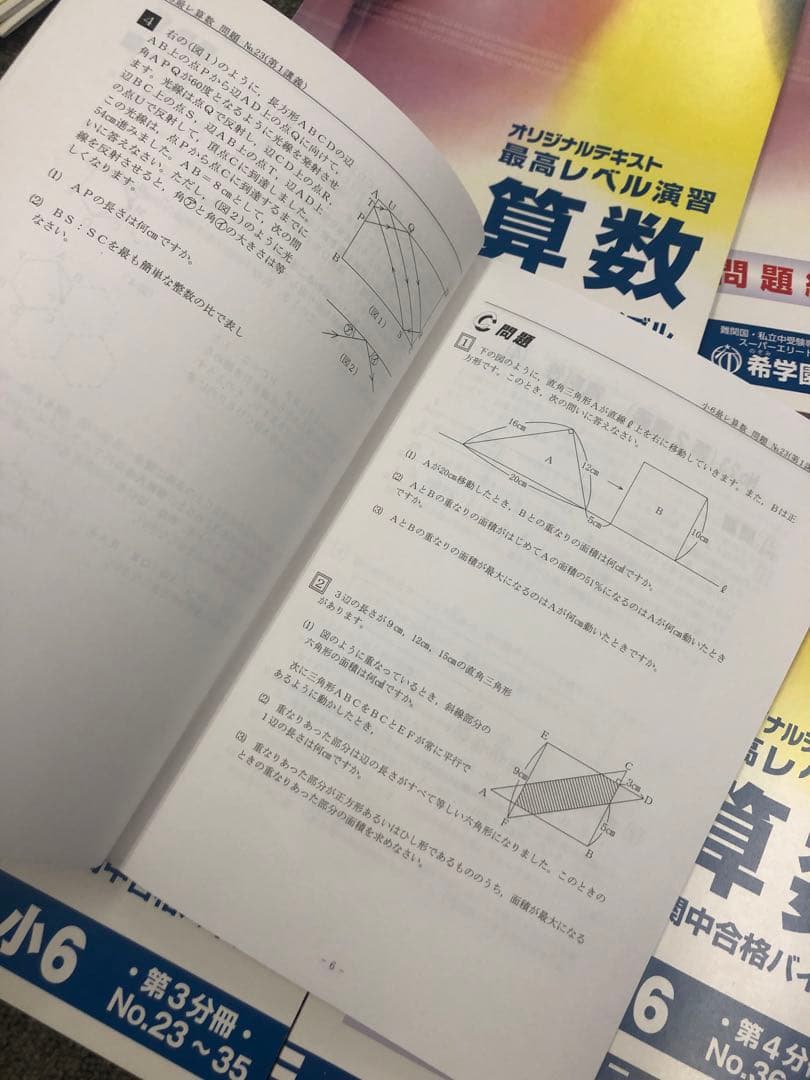 小6最レ算数 問題 No.23(第1講義)
4 右の(図1)のように、長方形ABCDの辺
AB上の点Pから辺AD上の点Qに向けて、
角APQが60度となるように光線を発射させ
ます。光線は点Qで反射し、辺CD上の点R、
辺BC上の点S、辺AB上の点T、辺AD上
の点Uで反射して、頂点Cに到達しました。
この光線は、点Pから点Cに到達するまでに
54cm進みました。AB=8cmとして、次の問
いに答えなさい。ただし、(図2)のように光
線を反射させると、角㋐と角㋑の大きさは等
しくなります。
(1) APの長さは何cmですか。
(2) BS:SCを最も簡単な整数の比で表し
なさい。
A U Q
T
P
B
S
(図1)
㋐
㋑
(図2)
オリジナルテキスト
最高レベル演習
算数
問題
難関国・私立中受験
スーパーエリート
希学園
小6最レ算数 問題 No.23(第1講
C問題
1 下の図のように、直角三角形Aが直線ℓ上を右に移動していきます。また、Bは正
方形です。このとき、次の問いに答えなさい。
16cm
A
12cm
20cm
5cm
B
10cm
ℓ
(1) Aが20cm移動したとき、Bとの重なりの面積は何cm²ですか。
(2) AとBの重なりの面積がはじめてAの面積の51%になるのはAが何cm動いたとき
ですか。
(3) AとBの重なりの面積が最大になるのはAが何cm動いたときですか。
2 3辺の長さが9cm、12cm、15cmの直角三角形
があります。
(1) 図のように重なっているとき、斜線部分の
六角形の面積は何cm²ですか。
次に三角形ABCをBCとEFが常に平行で
あるように動かしたとき、
(2) 重なりあった部分は辺の長さがすべて等しい六角形になりました。このときの
1辺の長さは何cmですか。
(3) 重なりあった部分が正方形あるいはひし形であるもののうち、面積が最大になる
ときの重なりあった部分の面積を求めなさい。
E
C
9cm
3cm
A
D
F
5cm
B
- 6 -
小6
・第3分冊・
No.23~35
算
関中合格バイ
6
・第4分
No.36